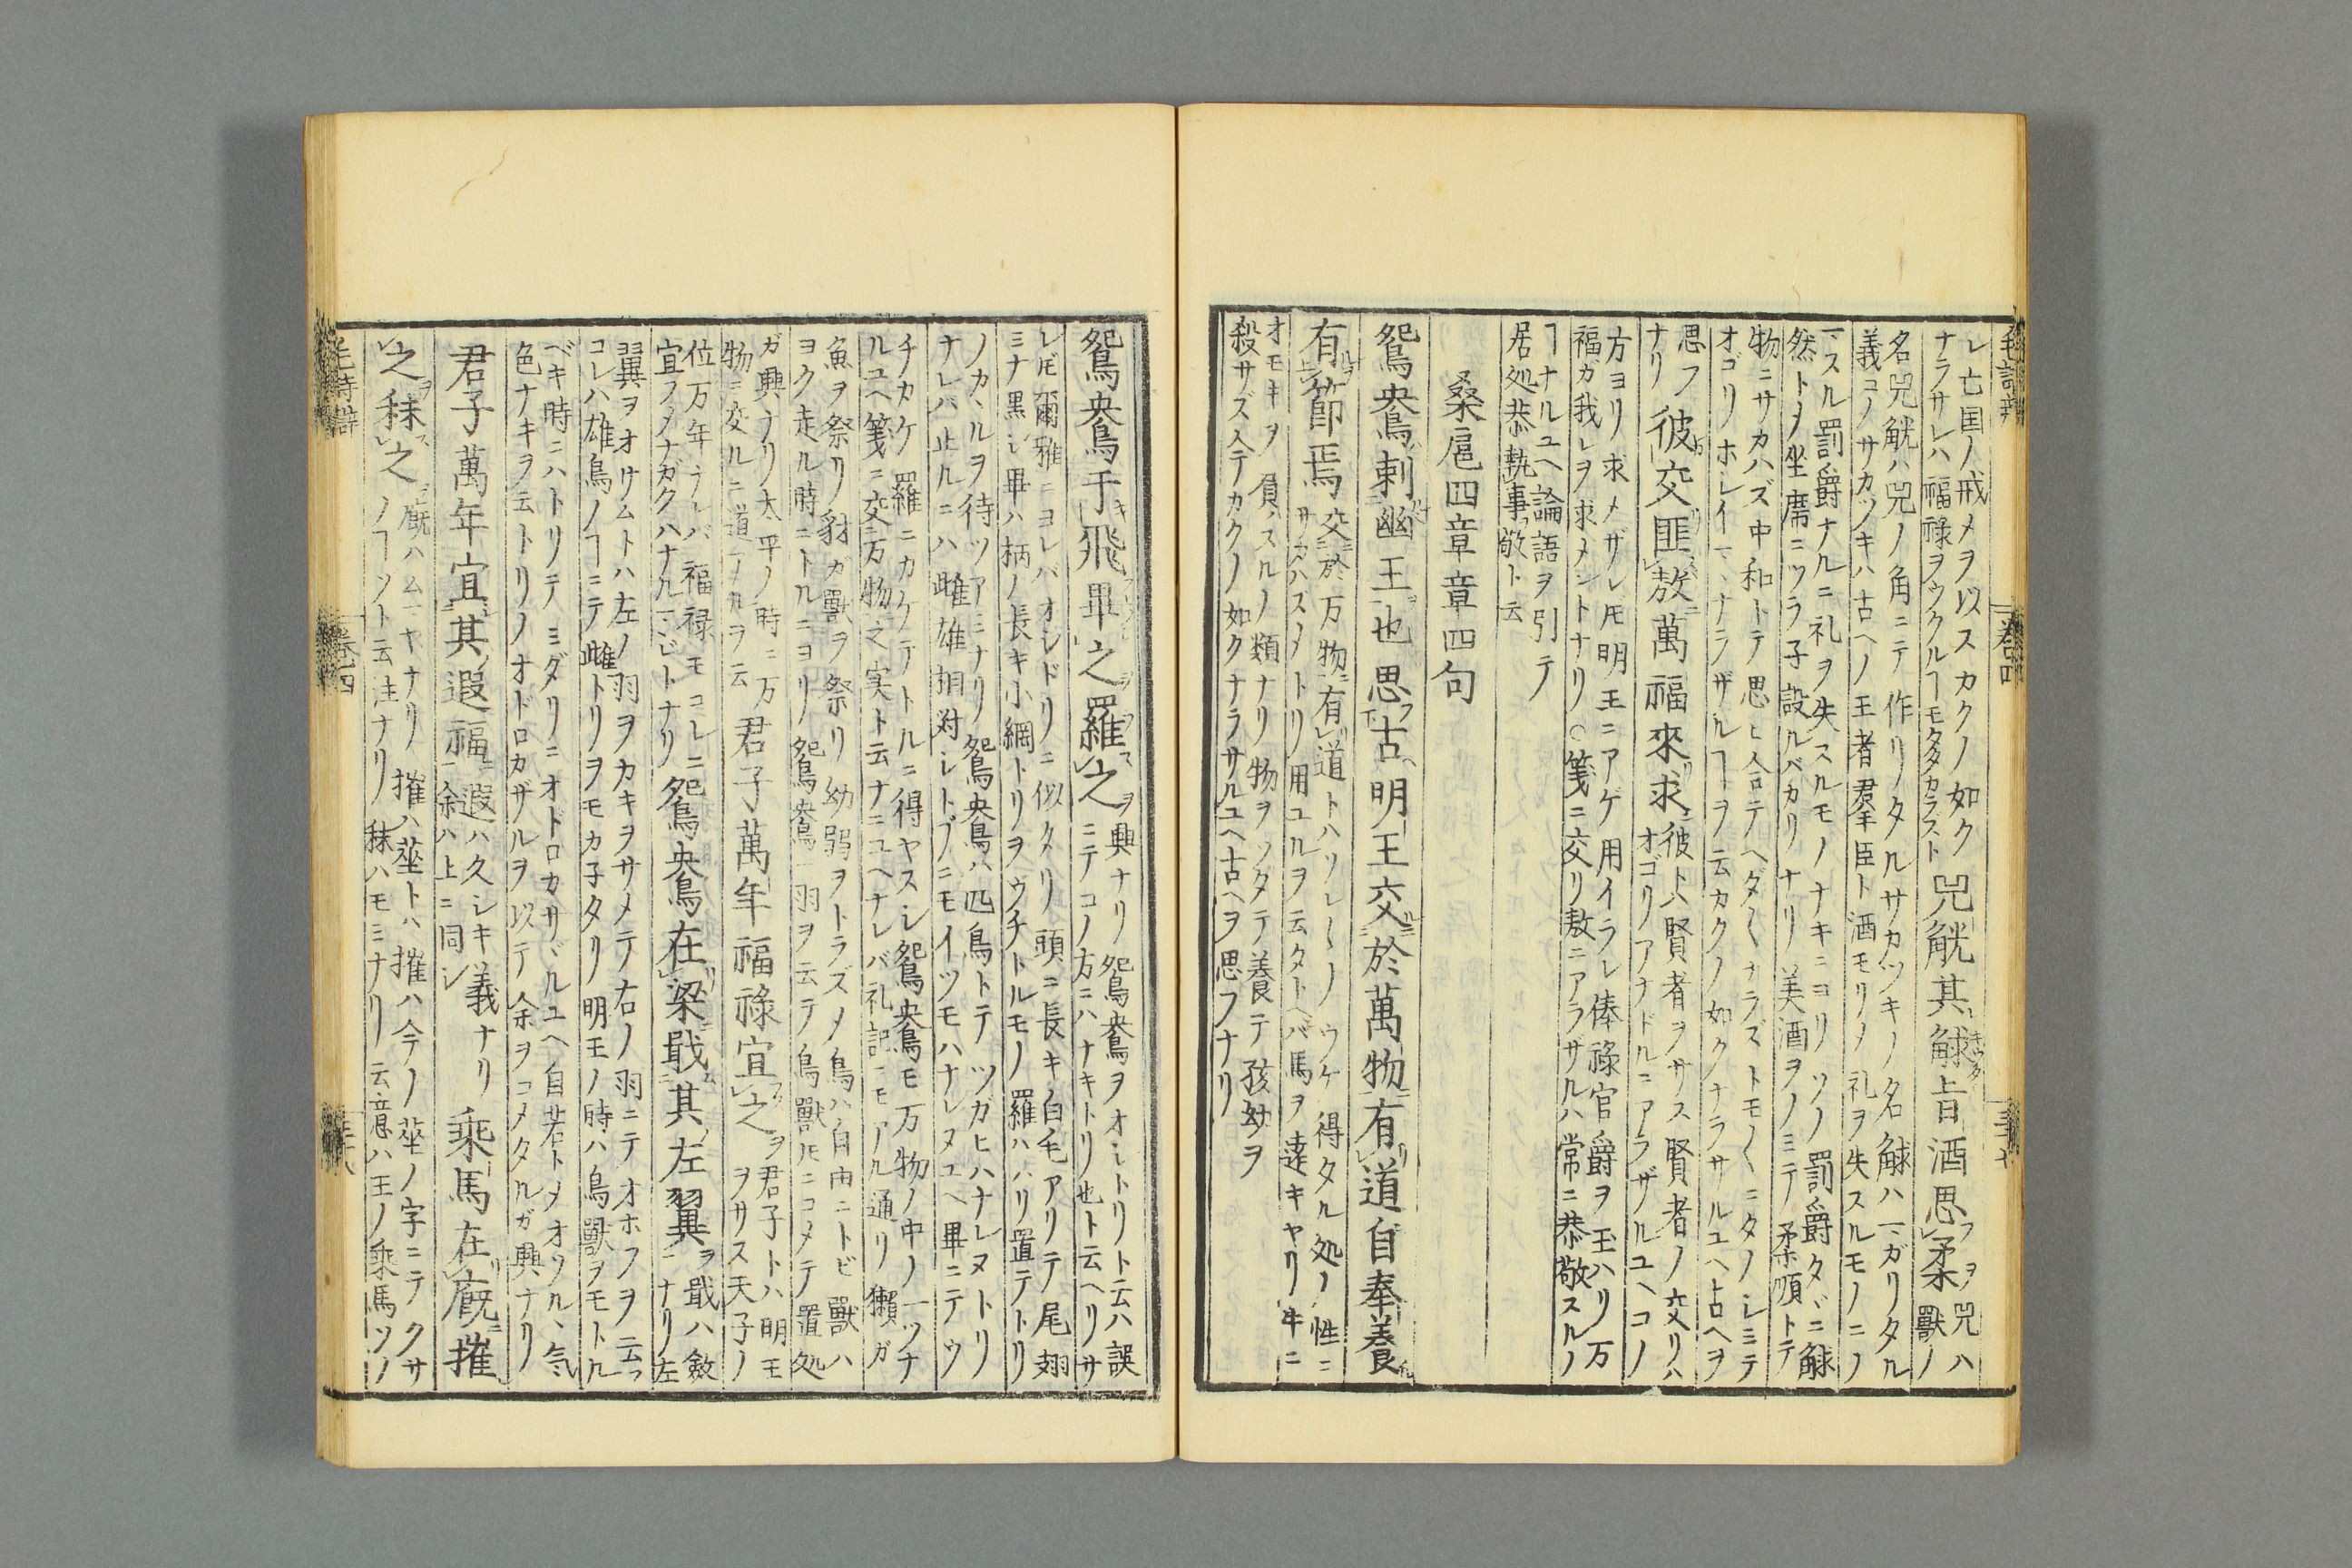 毛詩辨
卷四
レ亡国ノ戒メヲ以スカクノ如ク
ナラサレハ福禄ヲウクルヿモタタカラスト
兕觥其觩旨酒思柔
兕ハ
獸ノ
名兕觥ハ兕ノ角ニテ作リノタルサカツキノ名觩ハマガリタル
義コノサカツキハ古ヘノ王者羣臣ト酒モリメ礼ヲ失スルモノニノ
マスル罰爵ナルニ礼ヲ失スルモノナキニヨリソノ罰爵タヾニ觩
然トメ坐席ニツラ子設ルバカリナリ美酒ヲノミテ柔順トテ
物ニサカハズ中和トテ思ヒ合テヘダ〱ナラズトモ〱ニタノシミテ
オゴリホレイマヽナラザルヿヲ云カクノ如クナラサルユヘ古ヘヲ
思フ
ナリ
彼交匪敖萬福來求
彼トハ賢者ヲサス賢者ノ交リハ
オゴリアナドルニアラザルユヘコノ
方ヨリ求メザレ𪜈明王ニアゲ用イラレ俸禄官爵ヲ玉ハリ万
福ガ我レヲ求メントナリ○箋ニ交リ敖ニアラザルハ常ニ恭敬スルノ
ヿナルユヘ論語ヲ引テ
居処恭執事敬ト云
桑扈四章章四句
鴛鴦刺幽王也思古明王交於萬物有道自奉養
有節焉
交於万物有道トハソレ〱ノウケ得タル処ノ性ニ
サカハズメトリ用ユルヲ云タトヘバ馬ヲ遠キヤリ牛ニ
オモキヲ負スルノ類ナリ物ヲソタテ養テ孩幼ヲ
殺サズ今テカクノ如クナラサルユヘ古ヘヲ思フナリ
鴛鴦于飛畢之羅之
ヲ興ナリ鴛鴦ヲオシトリト云ハ誤
ニテコノ方ニハナキトリ也ト云ヘリサ
レ𪜈爾雅ニヨレバオシドリニ似タリ頭ニ長キ白毛アリテ尾翅
ミナ黒シ畢ハ柄ノ長キ小網トリヲウチトルモノ羅ハハリ置テトリ
ノカヽルヲ待ツアミナリ鴛鴦ハ匹鳥トテツガヒハナレヌトリ
ナレバ止ルニハ雌雄相対シトブニモイツモハナレヌユヘ畢ニテウ
チカケ羅ニカケテトルニ得ヤスシ鴛鴦モ万物ノ中ノ一ツナ
ルユヘ箋ニ交万物之実ト云ナニユヘナレバ礼記ニモアル通リ獺ガ
魚ヲ祭リ豺ガ獸ヲ祭リ幼弱ヲトラズメ鳥ハ自由ニトビ獸ハ
ヨク走ル時ニトルニヨリ鴛鴦一羽ヲ云テ鳥獸𪜈ニコメテ置処
ガ興ナリ太平ノ時ニ万
物ニ交ルニ道アルヲ云
君子萬年福祿宜之
ヲ君子トハ明王
ヲサス天子ノ
位万年ナレバ福禄モコレニ
宜フメナガクハナルマジトナリ
鴛鴦在梁戢其左翼
ヲ戢ハ斂
ナリ左
翼ヲオサムトハ左ノ羽ヲカキヲサメテ右ノ羽ニテオホフヲ云フ
コレハ雄鳥ノヿニテ雌トリヲモカ子タリ明王ノ時ハ鳥獸ヲモトル
ベキ時ニハトリテミダリニオドロカサヾルユヘ自若トメオソルヽ気
色ナキヲ云トリノオドロカザルヲ以テ余ヲコメタルガ興ナリ
君子萬年宜其遐福
遐ハ久シキ義ナリ
余ハ上ニ同シ
乘馬在廐摧
之秣之
廐ハムマヤナリ摧ハ莝トハ摧ハ今ノ莝ノ字ニテクサ
ノヿソト云注ナリ秣ハモミナリ云意ハ王ノ乘馬ツノ
毛詩辨
卷四